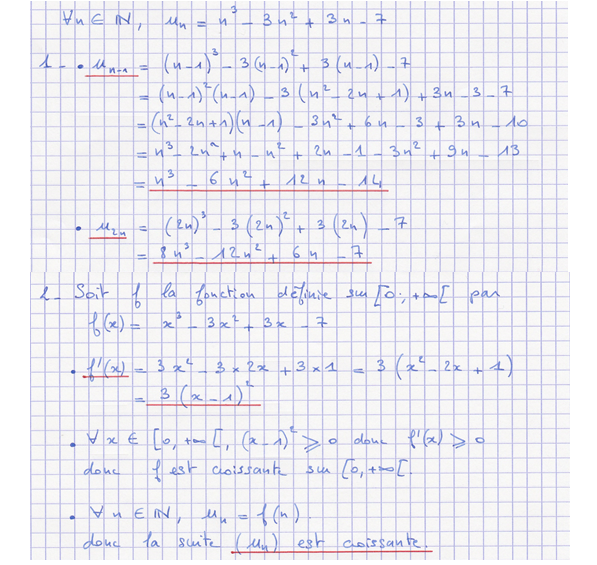 ∀n ∈ ℕ, uₙ = n³ - 3n² + 3n - 7
1 - • uₙ₋₁ = (n-1)³ - 3(n-1)² + 3(n-1) - 7
= (n-1)²(n-1) - 3(n² - 2n + 1) + 3n - 3 - 7
= (n² - 2n + 1)(n - 1) - 3n² + 6n - 3 + 3n - 10
= n³ - 2n² + n - n² + 2n - 1 - 3n² + 9n - 13
= n³ - 6n² + 12n - 14
• u₂ₙ = (2n)³ - 3(2n)² + 3(2n) - 7
= 8n³ - 12n² + 6n - 7
2 - Soit f la fonction définie sur [0; +∞[ par
f(x) = x³ - 3x² + 3x - 7
• f'(x) = 3x² - 3×2x + 3×1 = 3(x² - 2x + 1)
= 3(x - 1)²
• ∀x ∈ [0, +∞[, (x-1)² ⩾ 0 donc f'(x) ⩾ 0
donc f est croissante sur [0, +∞[.
• ∀n ∈ ℕ, uₙ = f(n)
donc la suite (uₙ) est croissante.